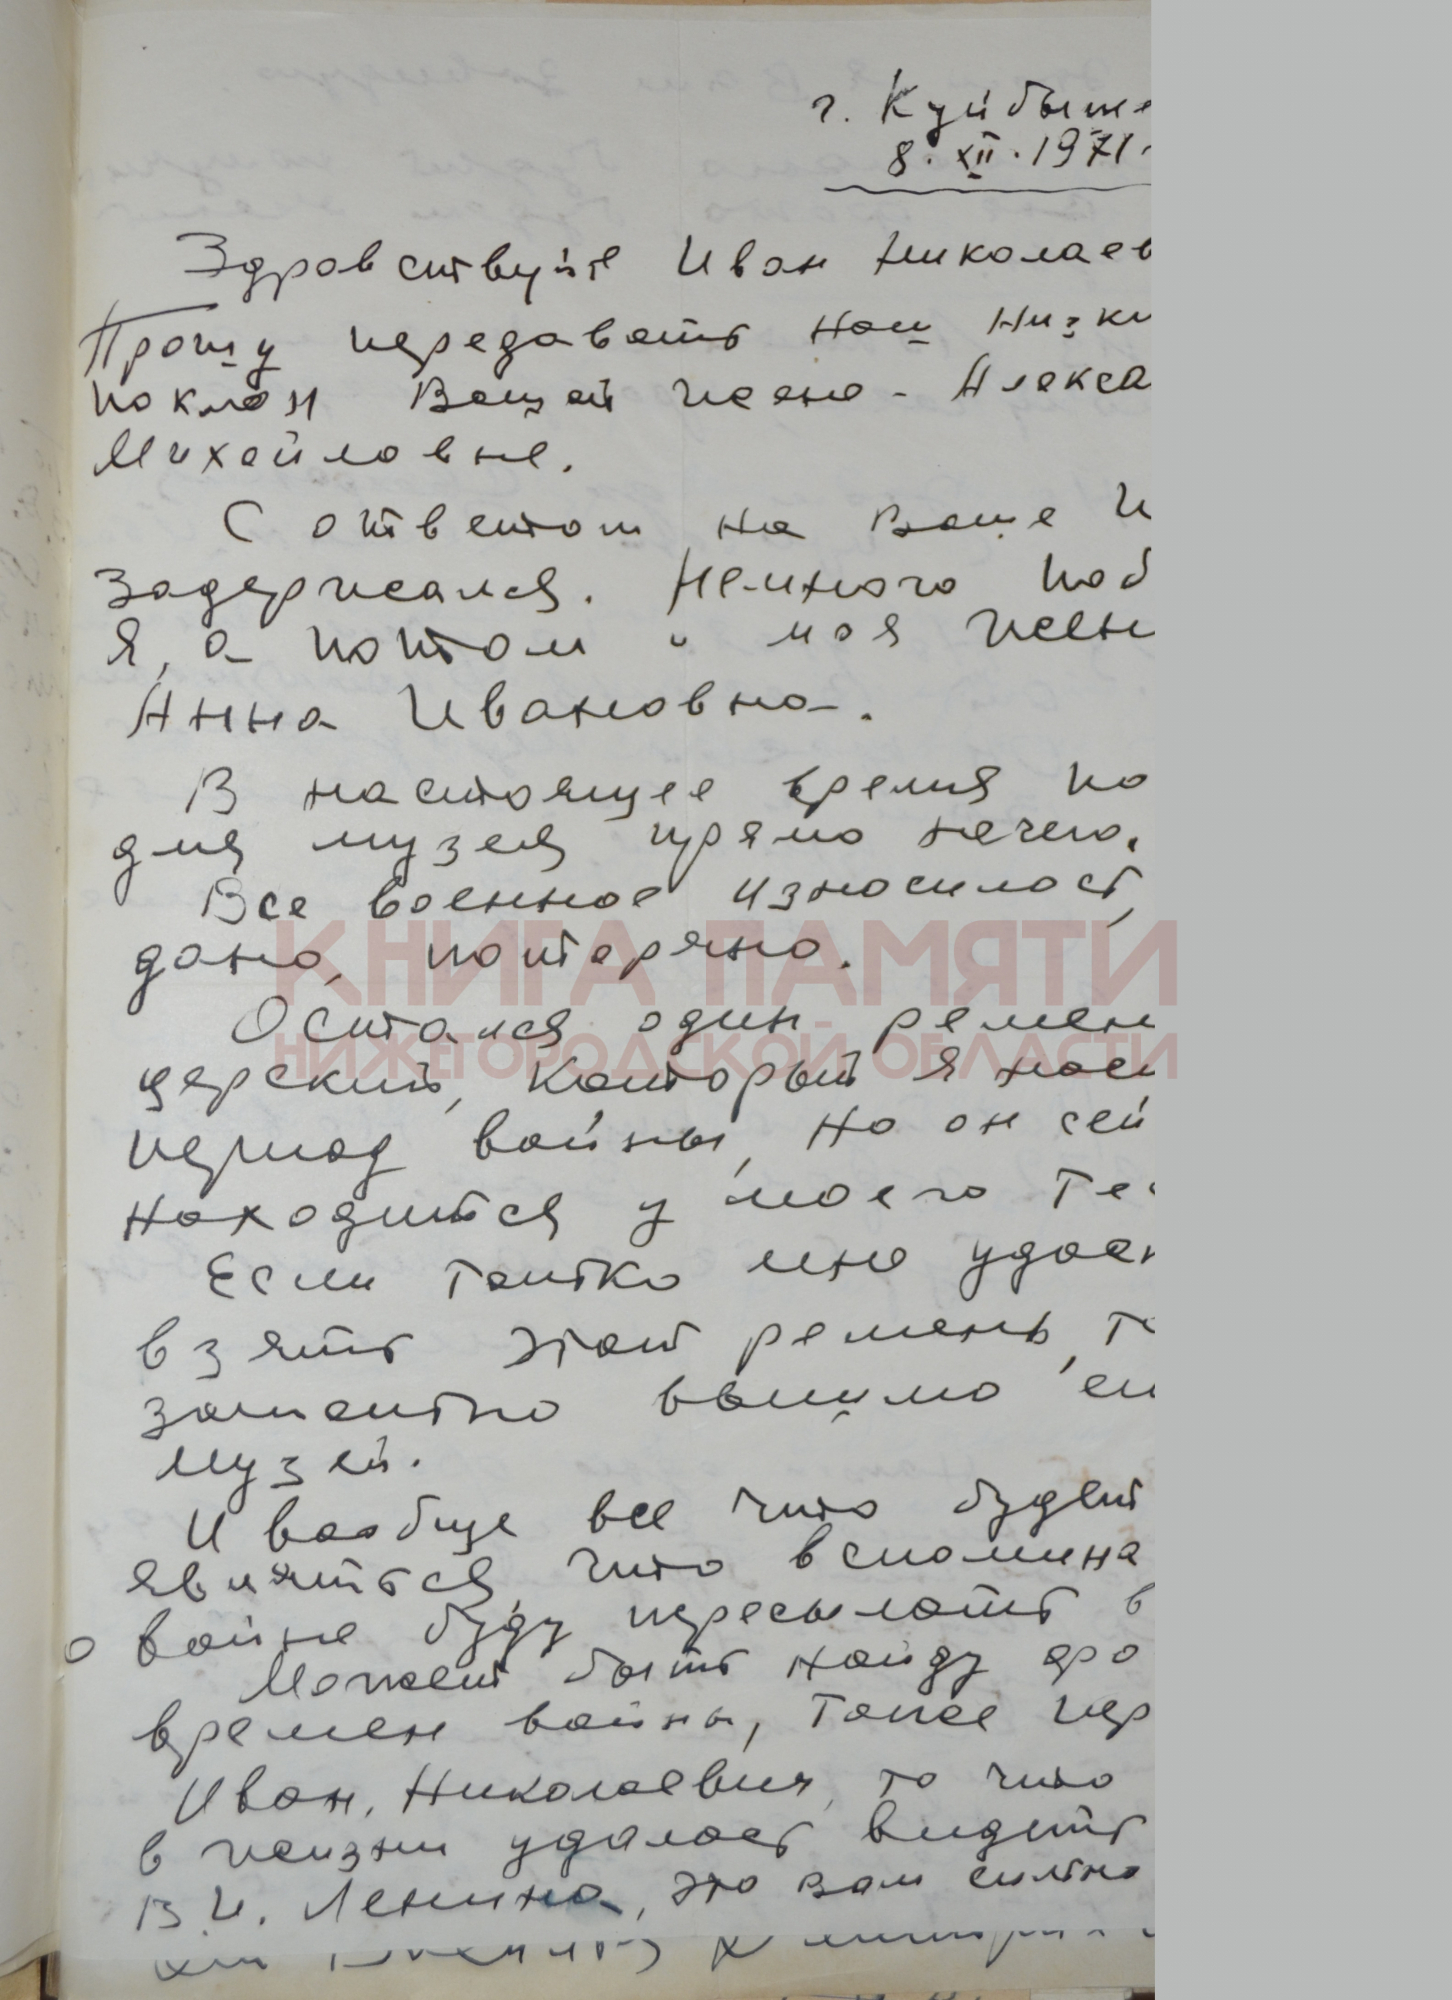 г. Куйбыше
8. XII. 1971.
Здравствуйте Иван Николаев
Прошу передавать наш низки
поклон Вашей жене - Алекса
Михайловне.
С ответом на Ваше п
задержался. Немного поб
я, а потом и моя жен
Анна Ивановна.
В настоящее время по
для музея прямо нечего.
Все военное износилось,
дано, потеряно.
КНИГА ПАМЯТИ
НИЖЕГОРОДСКОЙ ОБЛАСТИ
Остался один ремен
церский, который я носи
период войны, но он сей
находится у моего тес
Если только мне удаст
взять этот ремень, то
вышлю ег
музей.
И вообще все что будет
являться, что вспомина
о войне буду пересылать в
Может быть найду фо
времен войны, тоже пер
Иван Николаевич, то что
в жизни удалось видеть
В.И. Ленина, это Вам сильно